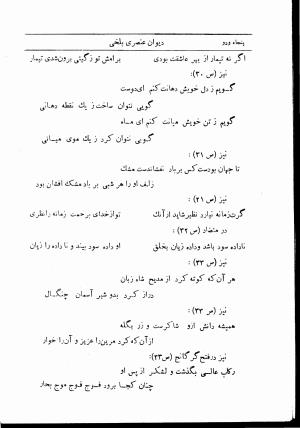 پنجاه و دو
دیوان عنصری بلخی
اگر نه تیمار از بهر عاشقت بودی
برامش تو ز گیتی برون شدی تیمار
نیز (ص ۳۰):
گـویم ز دل خویش دهانت کنم ای دوست
گویی نتوان ساخت ز یك نقطه دهانی
گویم ز تن خویش میانت کنم ای مـاه
گـویی نتوان کرد ز یك موی میـانی
نیز (ص ۳۱):
تا جهان بودست کس بر باد نفشاندست مشك
زلف او را هر شبی بر باد مشك افشان بود
نیز (ص ۲۱):
گرت زمانه نیارد نظیر شاید از آنك
تو از خدای برحمت زمانه را نظری
در متضاد (ص ۳۲):
ناداده سود باشد و داده زیان بخلق
او داده سود بیند و ناداده را زیان
نیز (ص ۳۳):
هر آن که کوته کرد از مدیح شاه زبان
دراز کرد بدو شیر آسمان چنگـال
نیز (ص ۳۳):
همیشه دانش ازو شاکرست و زر بگله
از آن که کرد مرین را عزیز و آن را خوار
نیز در فتح گرگانج (ص۳۳):
رکاب عالـی بگذشت و لشکر از پس او
چنان کجـا برود فـوج فوج موج بحار